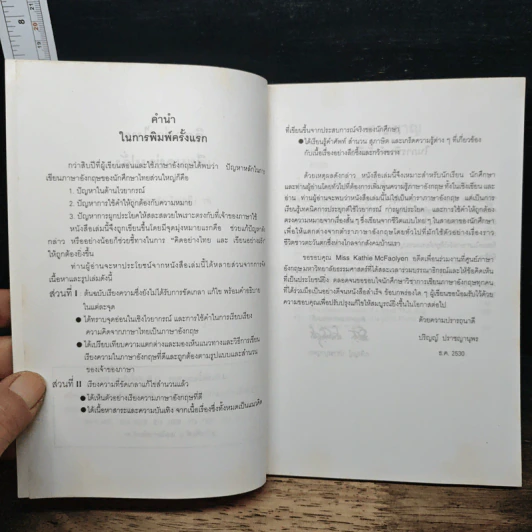 8
คำนำ
ในการพิมพ์ครั้งแรก
กว่าสิบปีที่ผู้เขียนสอนและใช้ภาษาอังกฤษได้พบว่า ปัญหาหลักในการ
เขียนภาษาอังกฤษของนักศึกษาไทยส่วนใหญ่ก็คือ
1. ปัญหาในด้านไวยากรณ์
2. ปัญหาการใช้คำให้ถูกต้องกับความหมาย
3. ปัญหาการผูกประโยคให้สละสลวยไพเราะตรงกับที่เจ้าของภาษาใช้
หนังสือเล่มนี้จึงถูกเขียนขึ้นโดยมีจุดมุ่งหมายแรกคือ ช่วยแก้ปัญหาดัง
กล่าว หรืออย่างน้อยก็ช่วยชี้ทางในการ "คิดอย่างไทย และ เขียนอย่างฝรั่ง"
ให้ถูกต้องยิ่งขึ้น
ท่านผู้อ่านจะหาประโยชน์จากหนังสือเล่มนี้ได้หลายส่วนจากการจัด
เนื้อหาและรูปเล่มดังนี้
ส่วนที่ I ต้นฉบับเรียงความซึ่งยังไม่ได้รับการขัดเกลา แก้ไข พร้อมคำอธิบาย
ในแต่ละจุด
● ได้ทราบจุดอ่อนในเชิงไวยากรณ์ และการใช้คำในการเรียบเรียง
ความคิดจากภาษาไทยเป็นภาษาอังกฤษ
● ได้เปรียบเทียบความแตกต่างและมองเห็นแนวทางและวิธีการเขียน
เรียงความในภาษาอังกฤษที่ดีและถูกต้องตามรูปแบบและสำนวน
ของเจ้าของภาษา
ส่วนที่ II เรียงความที่ขัดเกลาแก้ไขสำนวนแล้ว
● ได้เห็นตัวอย่างเรียงความภาษาอังกฤษที่ดี
● ได้เนื้อหาสาระและความบันเทิง จากเนื้อเรื่องซึ่งทั้งหมดเป็นแนวคิด
ที่เขียนขึ้นจากประสบการณ์จริงของนักศึกษา
● ได้เรียนรู้คำศัพท์ สำนวน สุภาษิต และเกร็ดความรู้ต่าง ๆ ที่เกี่ยวข้อง
กับเนื้อเรื่องอย่างลึกซึ้งและกว้างขวาง
ด้วยเหตุผลดังกล่าว หนังสือเล่มนี้จึงเหมาะสำหรับนักเรียน นักศึกษา
และท่านผู้อ่านโดยทั่วไปที่ต้องการเพิ่มพูนความรู้ภาษาอังกฤษ ทั้งในเชิงเขียน และ
อ่าน ท่านผู้อ่านจะพบว่าหนังสือเล่มนี้ไม่ใช่เป็นตำราภาษาอังกฤษ แต่เป็นการ
เรียนรู้เทคนิคการประยุกต์ใช้ไวยากรณ์ การผูกประโยค และการใช้คำให้ถูกต้อง
ตรงความหมายจากเรื่องสั้น ๆ ซึ่งเขียนจากชีวิตแบบไทยๆ ในคราบของภาษาอังกฤษ
เพื่อให้แตกต่างจากตำราภาษาอังกฤษโดยทั่วไปที่มักใช้ตัวอย่างเรื่องราว
ชีวิตชาวตะวันตกซึ่งห่างไกลจากสังคมบ้านเรา
ขอขอบคุณ Miss Kathie McFaolyen อดีตเพื่อนร่วมงานที่ศูนย์ภาษา
อังกฤษ มหาวิทยาลัยธรรมศาสตร์ที่ได้สละเวลาร่วมบรรณาธิกรณ์และให้ข้อคิดเห็น
ที่เป็นประโยชน์ยิ่ง ตลอดจนขอขอบใจนักศึกษาวิชาการเขียนภาษาอังกฤษทุกคน
ที่ได้ร่วมมือเป็นอย่างดีจนหนังสือสำเร็จ ข้อบกพร่องใด ๆ ผู้เขียนขอน้อมรับไว้ด้วย
ความขอบคุณเพื่อปรับปรุงแก้ไขให้สมบูรณ์ยิ่งขึ้นในโอกาสต่อไป
ด้วยความปรารถนาดี
ปริญญ์ ปราชญานุพร
ธ.ค. 2530